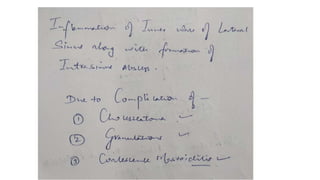 Inflammation of Inner wall of Lateral
Sinus along with formation of
Intrasinus abscess.
Due to Complication of —
① Cholesteatoma ✓
② Granulations ✓
③ Coalescence Mastoiditis ✓